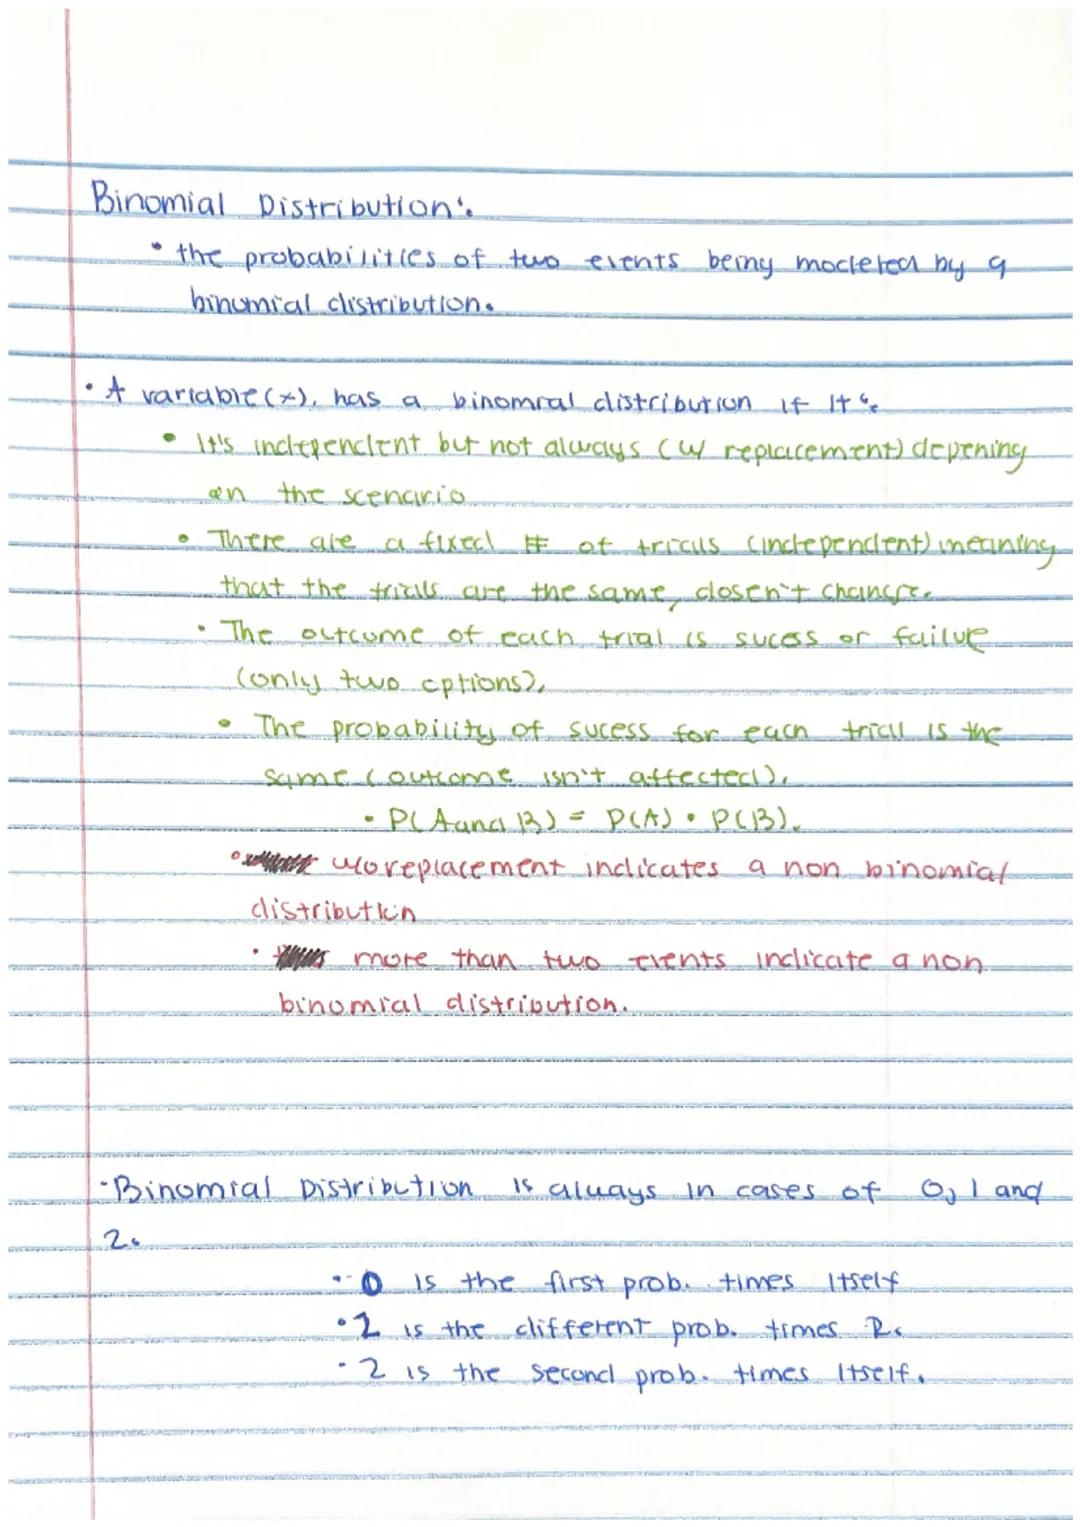 Binomial Distribution:
• the probabilities of two events being modeled by a
binomial distribution.
• A variable (x), has a binomial distribution if it:
• It's independent but not always (w/ replacement) depening
on the scenario
• There are a fixed # of trials (independent) meaning
that the trials are the same, dosen't change.
• The outcome of each trial is sucess or failure
(only two options).
• The probability of sucess for each trial is the
same (outcome isn't affected).
• P(A and B) = P(A) • P(B).
• w/o replacement indicates a non binomial
distribution
• more than two events indicate a non
binomial distribution.
• Binomial Distribution is always in cases of 0, 1 and
2.
• 0 is the first prob. times itself
• 1 is the different prob. times 2.
• 2 is the second prob. times itself.